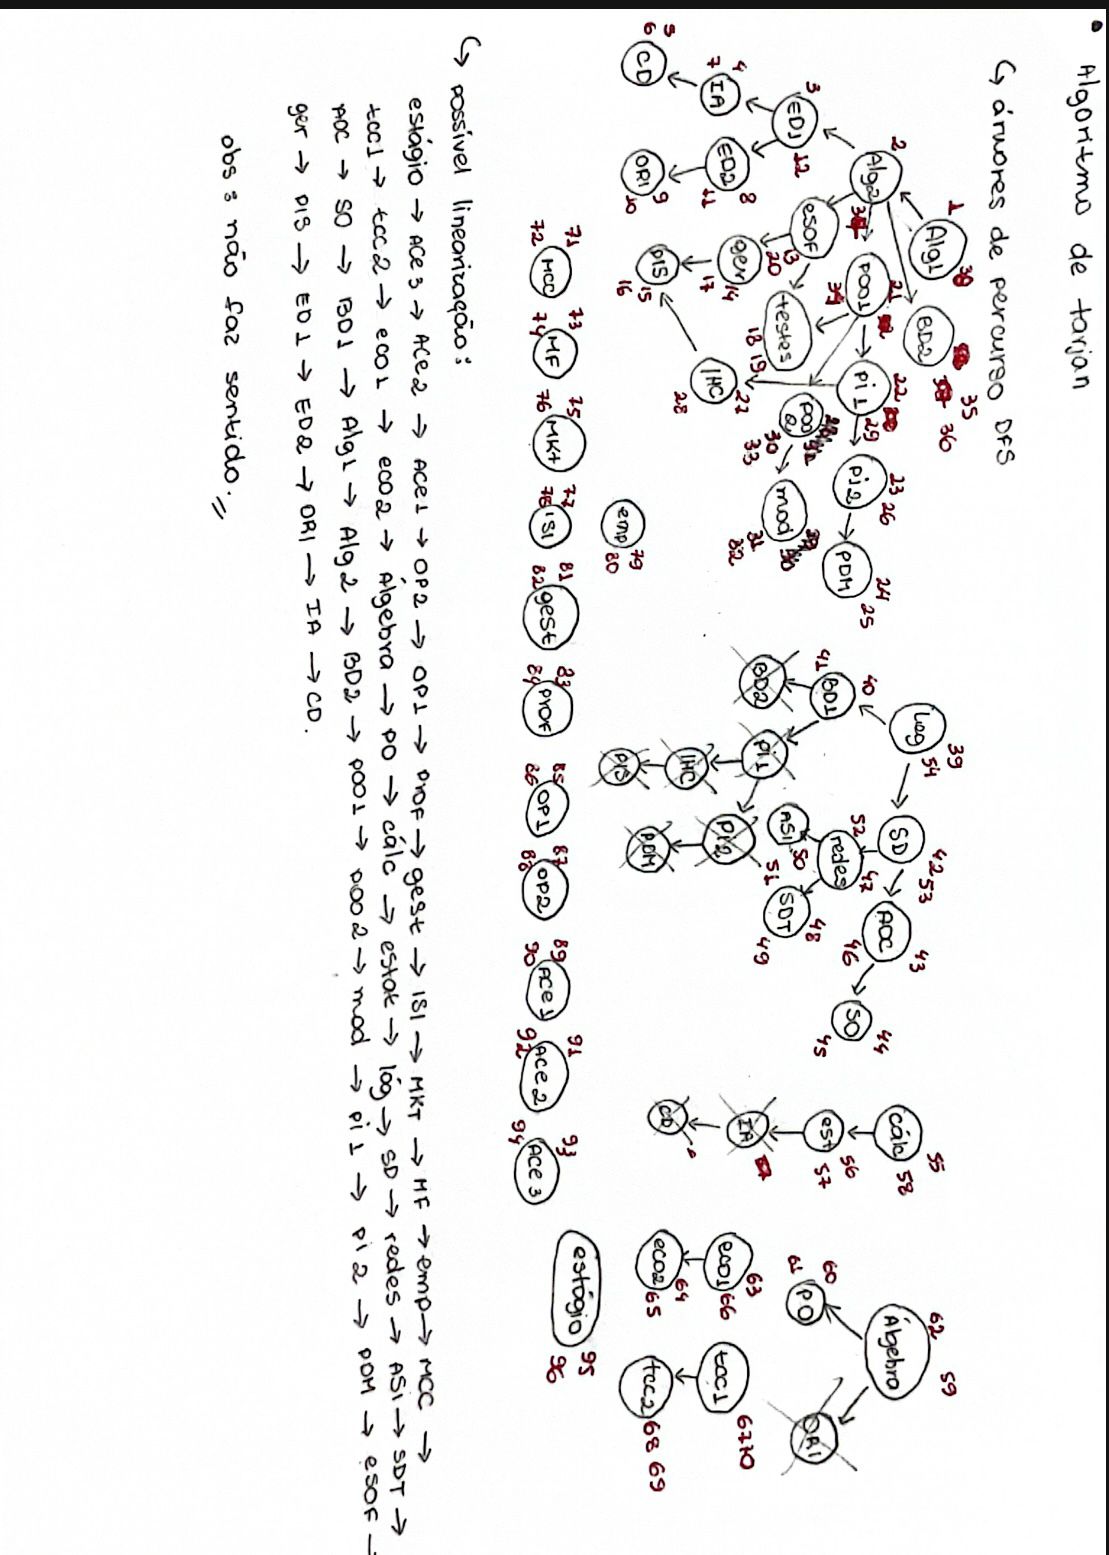 • Algoritmo de tarjan
↳ árvores de percurso DFS
1 Alg1 38
BD2 35 36
2 Alg2
21 POO1 34
22 Pi1 29
23 26 Pi2
24 25 PDM
3 ED1 12
esof 13 20
testes 18 19
POO2 30 33
mod 31 32
4 7 IA
8 ED2 11
ger 14 17
27 IHC 28
5 6 CD
ORI 9 10
PIS 15 16
emp 79 80
39 Log 54
42 53 SD
43 AOC 46
44 SO 45
40 BD1 41
52 47 redes
ASI 50 51
48 SDT 49
BD2
Pi1
Pi2
IHC
PDM
PIS
55 cálc 58
56 est 57
IA
CD
62 59 Álgebra
60 61 PO
ORI
63 eco1 66
64 eco2 65
tcc1 67 70
tcc2 68 69
71 72 MCC
73 74 MF
75 76 MKt
77 78 ISI
81 82 gest
83 84 Prof
85 86 OP1
87 88 OP2
89 90 Ace1
91 92 Ace2
93 94 Ace 3
estágio 95 96
↳ possível linearização:
estágio → ACe 3 → ACe2 → ACe1 → OP2 → OP1 → Prof → gest → ISI → MKT → MF → emp → MCC →
tcc1 → tcc2 → eco1 → eco2 → Álgebra → PO → cálc → estat → lóg → SD → redes → ASI → SDT →
AOC → SO → BD1 → Alg1 → Alg2 → BD2 → POO1 → POO2 → mod → Pi1 → Pi2 → PDM → esof →
ger → PIS → ED1 → ED2 → ORI → IA → CD.
obs: não faz sentido.